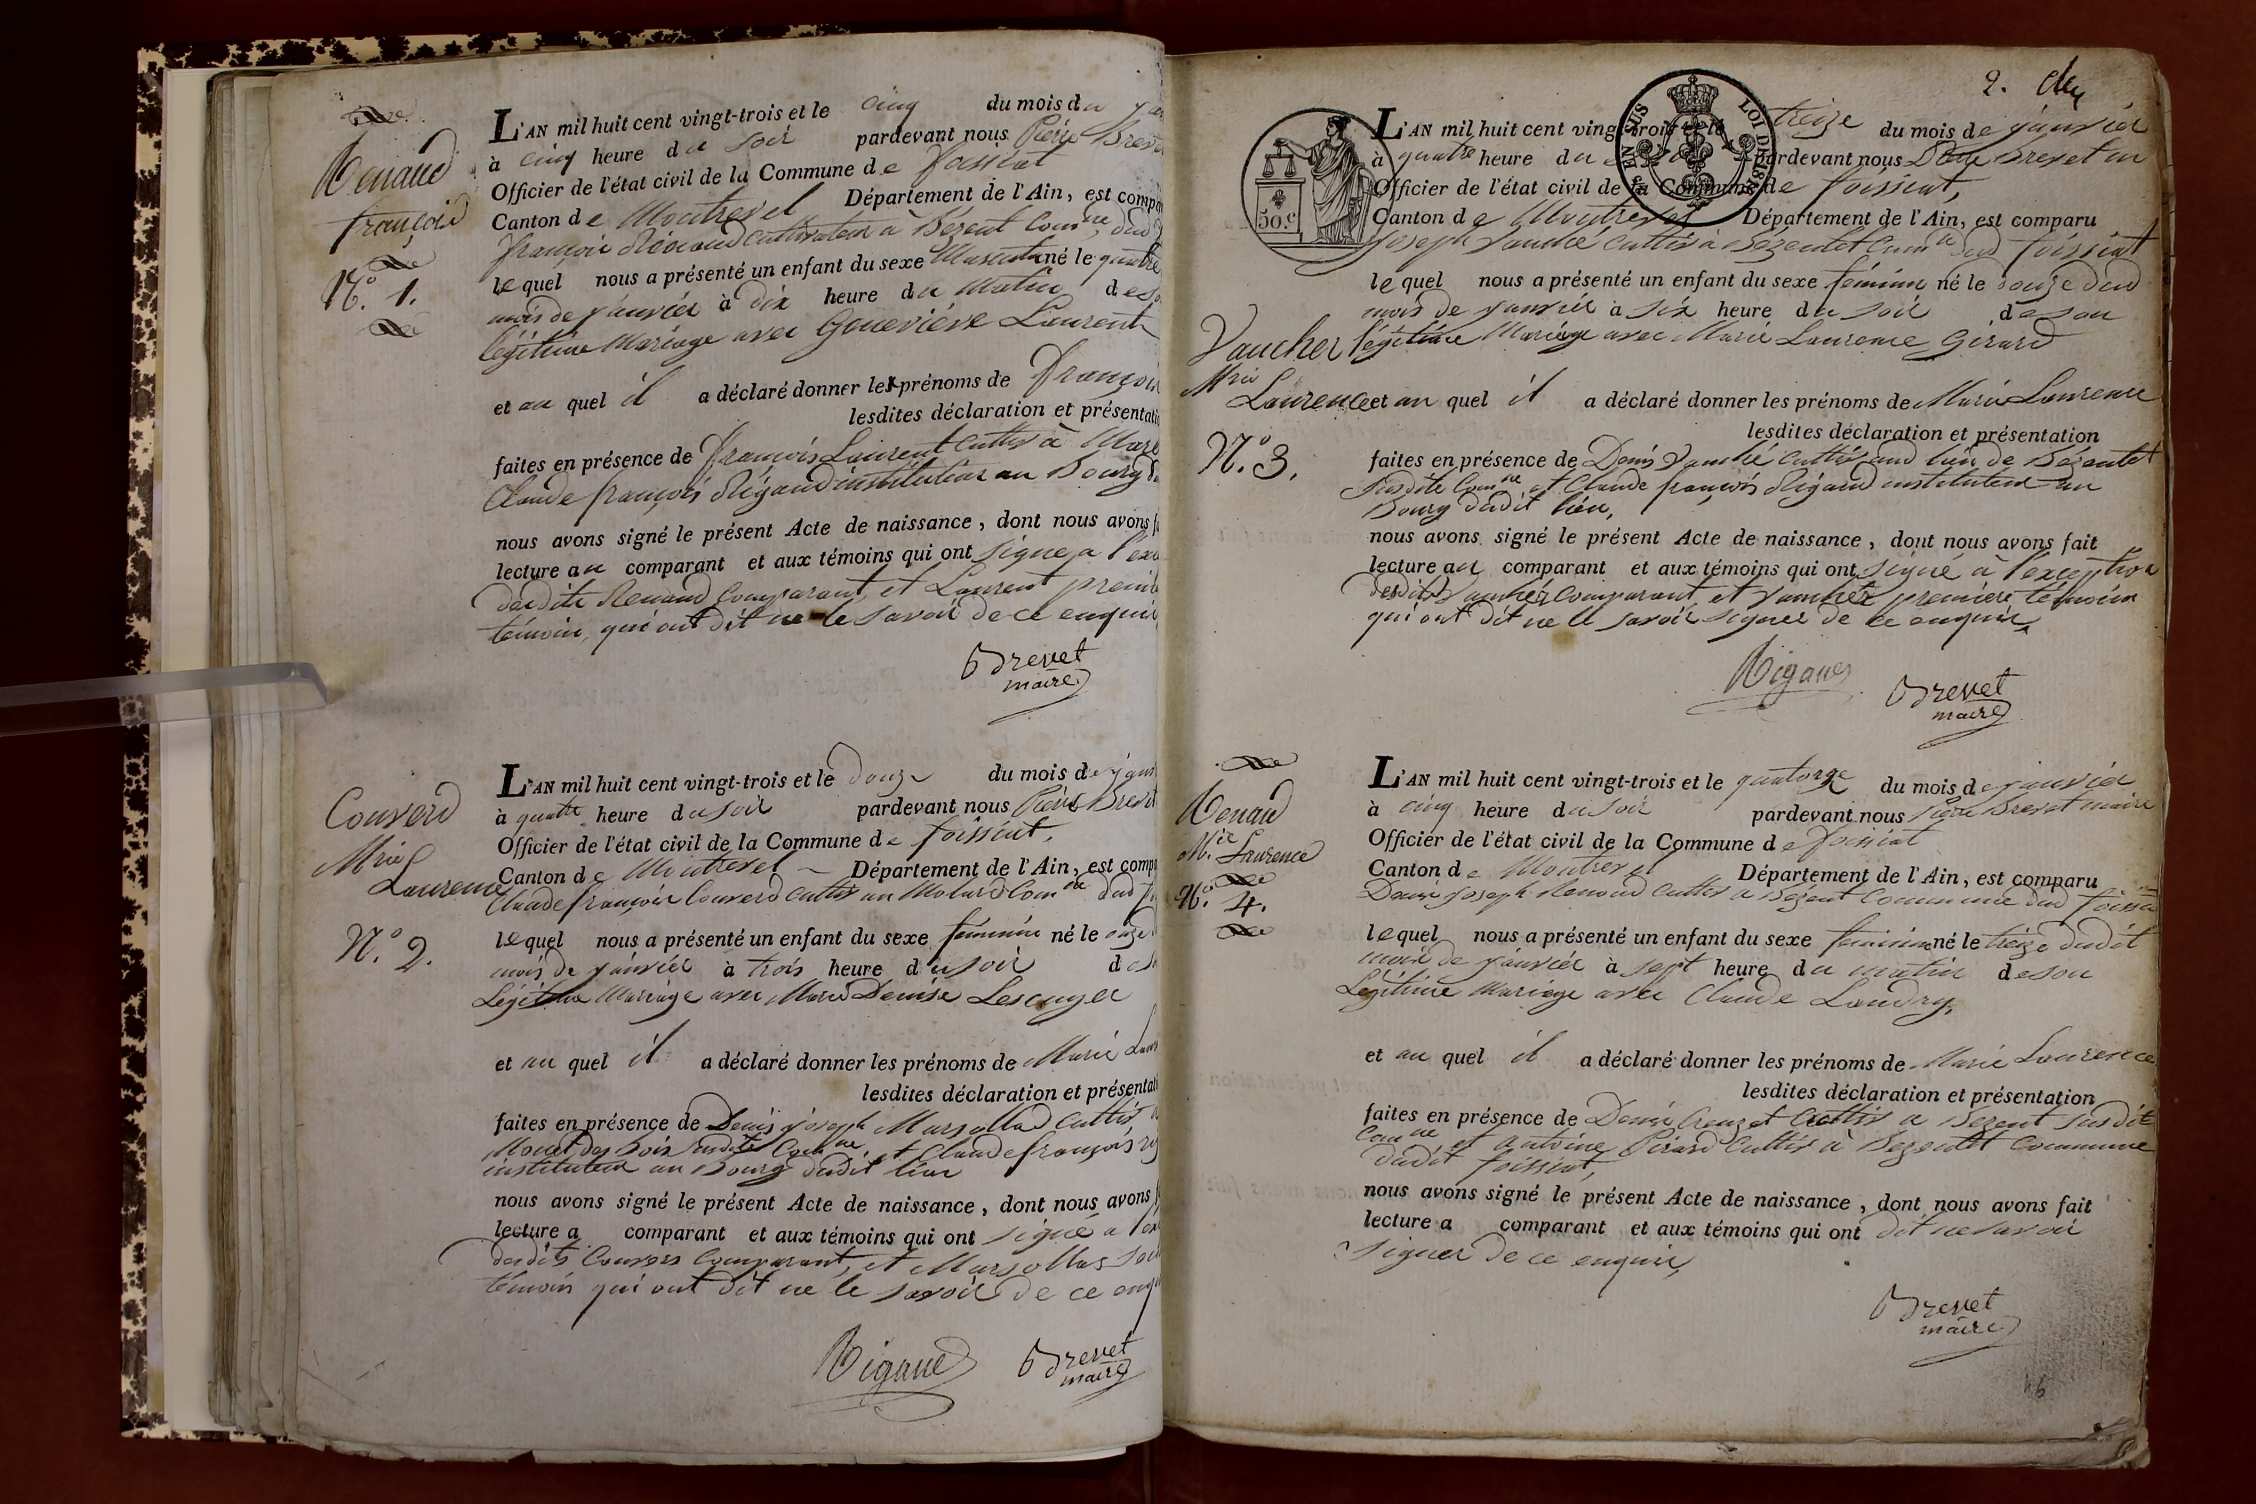 Renaud
françois
N.o 1.
L'AN mil huit cent vingt-trois et le cinq du mois du
à cinq heure du soir pardevant nous Pierre Brevet
Officier de l'état civil de la Commune de foissiat
Canton de Montrevel Département de l'Ain, est compa
françois Rénaud cultivateur à Bézent Comne dud
lequel nous a présenté un enfant du sexe Masculin né le quatre
mois de janvier à dix heure du Matin de so
légitime Mariage avec Geneviève Laurent
et au quel il a déclaré donner les prénoms de françois
lesdites déclaration et présentatio
faites en présence de françois Laurent Cultivr à
Claude françois Rigaud instituteur au Bourg
nous avons signé le présent Acte de naissance, dont nous avons f
lecture au comparant et aux témoins qui ont signé a l'exc
desdits Renaud Comparant, et Laurent premie
témoin, qui ont dit ne le savoir de ce enquis
Brevet
maire
Couverd
Mrie
Laurence
N.o 2.
L'AN mil huit cent vingt-trois et le douze du mois de janv
à quatre heure du soir pardevant nous Pierre Brevet
Officier de l'état civil de la Commune de foissiat,
Canton de Montrevel Département de l'Ain, est compa
Claude françois Couverd Cultivr au Molard Comne dud
lequel nous a présenté un enfant du sexe féminin né le onze
mois de janvier à trois heure du soir de so
Légitime Mariage avec Marie Denise Lescuyer
et au quel il a déclaré donner les prénoms de Marie Laur
lesdites déclaration et présentati
faites en présence de Denis joseph Marsollad Cultivr
des Bois susdite Comne, et Claude françois
instituteur au Bourg dudit lieu
nous avons signé le présent Acte de naissance, dont nous avons
lecture a comparant et aux témoins qui ont signé a l'ex
desdits Couverd Comparant, et Marsollas
témoin qui ont dit ne le savoir de ce enq
Rigaud
Brevet
maire
2. deux
50.c
EN SUS
LOI DE 1816
Vaucher
Mrie
Laurence
N.o 3.
L'AN mil huit cent vingt-trois et le treize du mois de janvier
à quatre heure du soir pardevant nous Pierre Brevet
Officier de l'état civil de la Commune de foissiat,
Canton de Montrevel Département de l'Ain, est comparu
Joseph Vauché Cultivr à Bézentet Comne dud foissiat
lequel nous a présenté un enfant du sexe féminin né le douze dud
mois de janvier à six heure du soir de son
légitime Mariage avec Marie Laurence Girard
et au quel il a déclaré donner les prénoms de Marie Laurence
lesdites déclaration et présentation
faites en présence de Denis Vauché Cultivr aud lieu de Bézentet
susdite Comne et Claude françois Rigaud instituteur au
Bourg dudit lieu,
nous avons signé le présent Acte de naissance, dont nous avons fait
lecture au comparant et aux témoins qui ont signé à l'exception
desdits Vaucher Comparant, et Vaucher premier témoin
qui ont dit ne le savoir signer de ce enquis,
Rigaud
Brevet
maire
Renaud
M.ie Laurence
N.o 4.
L'AN mil huit cent vingt-trois et le quatorze du mois de janvier
à cinq heure du soir pardevant nous Pierre Brevet maire
Officier de l'état civil de la Commune de foissiat
Canton de Montrevel Département de l'Ain, est comparu
Denis Joseph Renaud Cultivr a Bézent Commune dud foissiat
lequel nous a présenté un enfant du sexe feminin né le treize dudit
mois de janvier à sept heure du matin de son
Légitime Mariage avec Claude Landry,
et au quel il a déclaré donner les prénoms de Marie Laurence
lesdites déclaration et présentation
faites en présence de Denis Creuzet Cultivr a Bezent susdite
Comne et Antoine Pirard Cultivr à Bézentet Commune
dudit foissiat,
nous avons signé le présent Acte de naissance, dont nous avons fait
lecture a comparant et aux témoins qui ont dit ne savoir
signer de ce enquis,
Brevet
maire